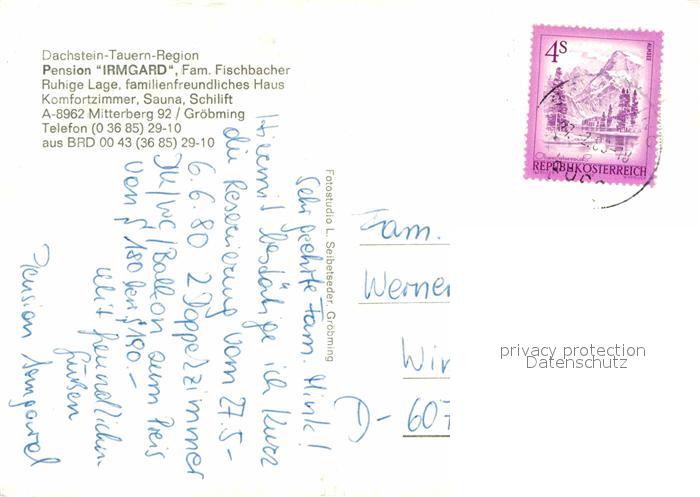 Dachstein-Tauern-Region
Pension "IRMGARD", Fam. Fischbacher
Ruhige Lage, familienfreundliches Haus
Komfortzimmer, Sauna, Schilift
A-8962 Mitterberg 92 / Gröbming
Telefon (0 36 85) 29-10
aus BRD 00 43 (36 85) 29-10
Sehr geehrte Fam. Hink!
Hiermit bestätige ich kurz
die Reservierung vom 27.5-
6.6.80 2 Doppelzimmer
/WC/Balkon zum Preis
von S 180 S 190.-
Mit freundlichen
Grüßen
Pension Irmgard
Fotostudio L. Seibetseder, Gröbming
4S
ALMSEE
REPUBLIK ÖSTERREICH
Fam.
Werner
Wir
D-607
privacy protection
Datenschutz